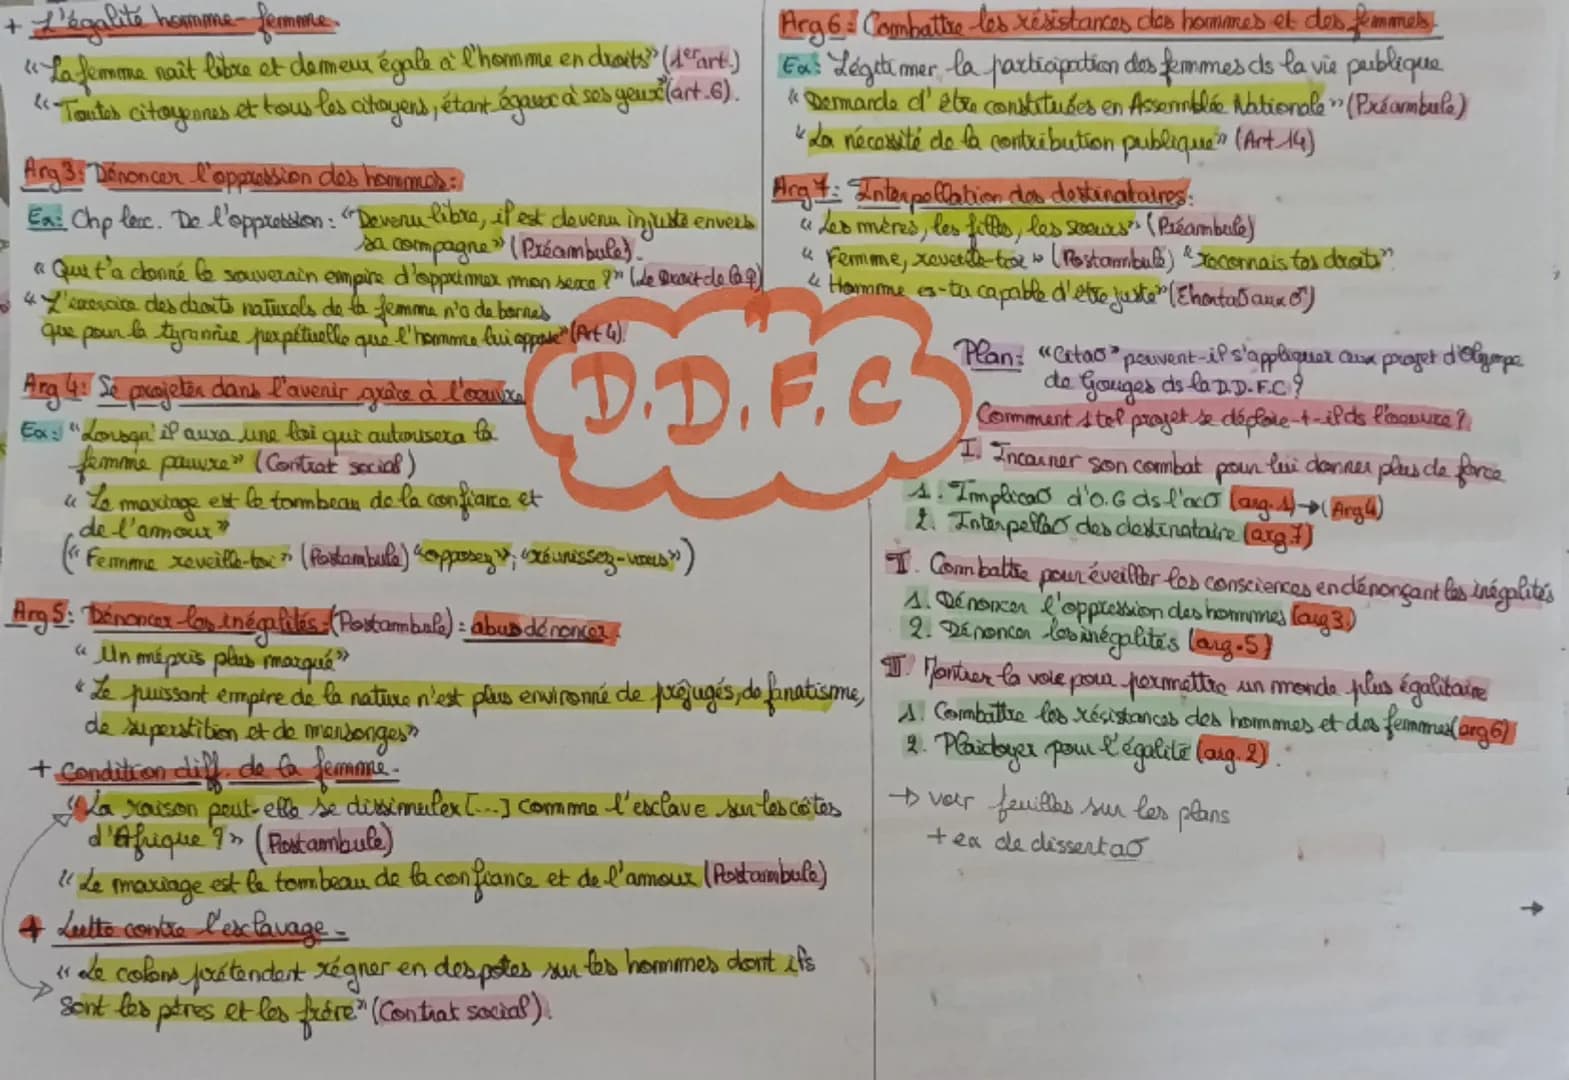 + L'égalité homme-femme.
"La femme naît libre et demeux égale à l'homme en droits" (1er art.)
"Toutes citoyennes et tous les citoyens, étant égaux à ses yeux" (art.6).
Arg 3: Dénoncer l'oppression des hommes:
Ex: Chp lexc. De l'oppression: "Devenu libre, il est devenu injuste envers
sa compagne" (Préambule).
"Qui t'a donné le souverain empire d'opprimer mon sexe?" (Le Droit de la
"L'exercice des droits naturels de la femme n'a de bornes
que pour la tyrannie perpétuelle que l'homme lui oppose" (Art 4).
Arg 4: Se projeter dans l'avenir grâce à l'œuvre
Ex: "Lorsqu'il aura une loi qui autorisera la
femme pauvre" (Contrat social)
"Le mariage est le tombeau de la confiance et
de l'amour"
("Femme reveille-toi" (Postambule) "opposez"; "réunissez-vous")
Arg 5: Dénoncer les inégalités (Postambule): abus dénoncer.
"Un mépris plus marqué"
"Le puissant empire de la nature n'est plus environné de préjugés, de fanatisme,
de superstition et de mensonges"
+ Condition diff. de la femme.
"La raison peut-elle se dissimuler [...] comme l'esclave sur les côtes
d'Afrique ?" (Postambule)
"Le mariage est le tombeau de la confiance et de l'amour (Postambule)
+ Lutte contre l'esclavage.
"Le colons prétendent régner en despotes sur les hommes dont ils
sont les pères et les frère" (Contrat social).
D.D.F.C
Arg 6: Combattre les résistances des hommes et des femmes.
Ex: Légitimer la participation des femmes ds la vie publique
"Demande d'être constituées en Assemblée Nationale" (Préambule)
"La nécessité de la contribution publique" (Art 14)
Arg 7: Interpellation des destinataires:
"Les mères, les filles, les soeurs" (Préambule)
"Femme, reveille-toi" (Postambule) "reconnais tes droits".
"Homme es-tu capable d'être juste"
Plan: "Citao" peuvent-il s'appliquer aux projet d'Olympe
de Gouges ds la D.D.F.C ?
Comment 1 tel projet se déploie-t-il ds l'oeuvre ?
I. Incarner son combat pour lui donner plus de force
1. Implicao d'O.G ds l'aco (arg.1) → (Arg 4)
2. Interpellao des destinataire (arg 7)
II. Combattre pour éveiller les consciences en dénonçant les inégalités
1. Dénoncer l'oppression des hommes (arg 3.)
2. Dénoncer les inégalités (arg.5)
III. Montrer la voie pour permettre un monde plus égalitaire
1. Combattre les résistances des hommes et des femmes (arg 6)
2. Plaidoyer pour l'égalité (arg.2).
→ voir feuilles sur les plans
+ ex de dissertao
→